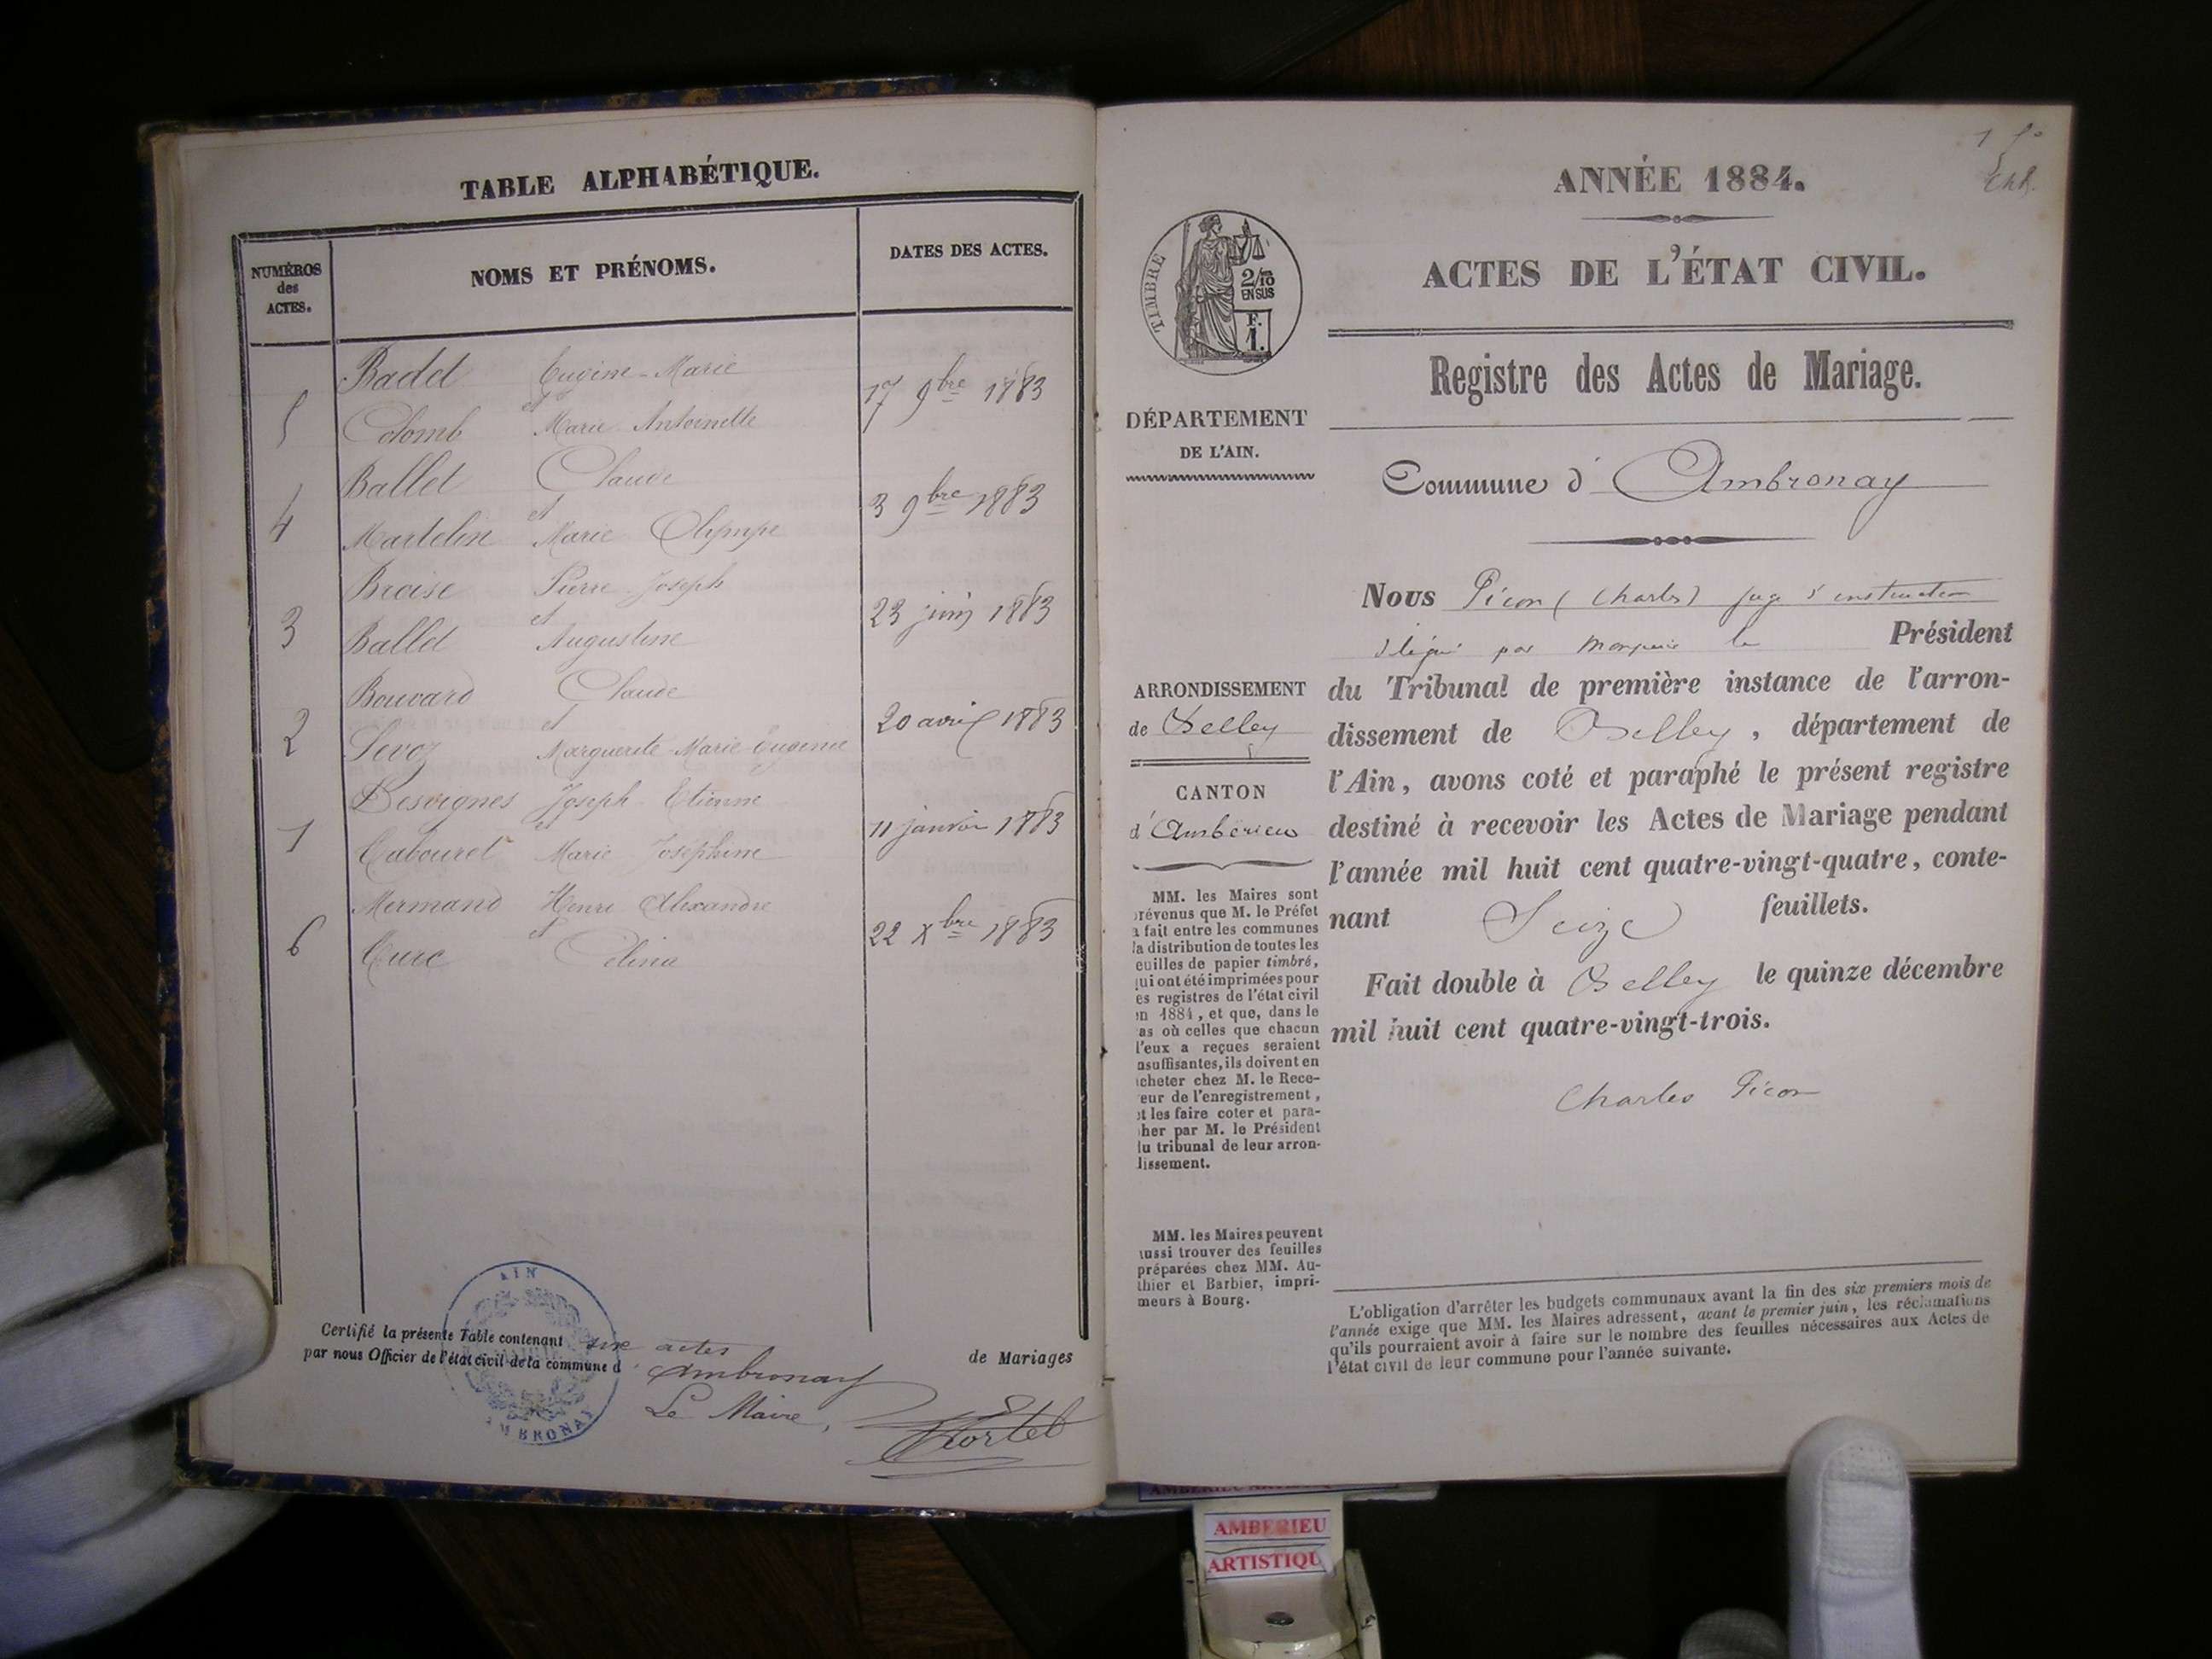 TABLE ALPHABÉTIQUE.
NUMÉROS
des
ACTES.
NOMS ET PRÉNOMS.
DATES DES ACTES.
Badet Eugène-Marie
5 et 17 9bre 1883
Colomb Marie Antoinette
Ballet Claude
4 et 3 9bre 1883
Martelin Marie Olympe
Broise Pierre Joseph
3 et 23 juin 1883
Ballet Augustine
Bouvard Claude
2 et 20 avril 1883
Sevoz Marguerite-Marie-Eugénie
Desvignes Joseph-Etienne
1 et 11 janvier 1883
Cabouret Marie Josephine
Mermand Henri Alexandre
6 et 22 Xbre 1883
Curc Célina
AIN
AMBRONAY
Certifié la présente Table contenant six actes de Mariages
par nous Officier de l'état civil de la commune d'Ambronay
Le Maire,
1 fo
ANNÉE 1884.
ACTES DE L'ÉTAT CIVIL.
TIMBRE
2/10
EN SUS
F.
1.
Registre des Actes de Mariage.
DÉPARTEMENT
DE L'AIN.
Commune d'Ambronay
Nous Picon (Charles) juge d'instruction
délégué par Monsieur le Président
du Tribunal de première instance de l'arron-
dissement de Belley, département de
l'Ain, avons coté et paraphé le présent registre
destiné à recevoir les Actes de Mariage pendant
l'année mil huit cent quatre-vingt-quatre, conte-
nant Seize feuillets.
Fait double à Belley le quinze décembre
mil huit cent quatre-vingt-trois.
Charles Picon
ARRONDISSEMENT
de Belley
CANTON
d'Ambérieu
MM. les Maires sont
prévenus que M. le Préfet
a fait entre les communes
la distribution de toutes les
euilles de papier timbré,
qui ont été imprimées pour
es registres de l'état civil
en 1884, et que, dans le
as où celles que chacun
d'eux a reçues seraient
nsuffisantes, ils doivent en
cheter chez M. le Rece-
eur de l'enregistrement,
et les faire coter et para-
pher par M. le Président
du tribunal de leur arron-
dissement.
MM. les Maires peuvent
aussi trouver des feuilles
préparées chez MM. Au-
thier et Barbier, impri-
meurs à Bourg.
L'obligation d'arrêter les budgets communaux avant la fin des six premiers mois de
l'année exige que MM. les Maires adressent, avant le premier juin, les réclamations
qu'ils pourraient avoir à faire sur le nombre des feuilles nécessaires aux Actes de
l'état civil de leur commune pour l'année suivante.
AMBERIEU
ARTISTIQU